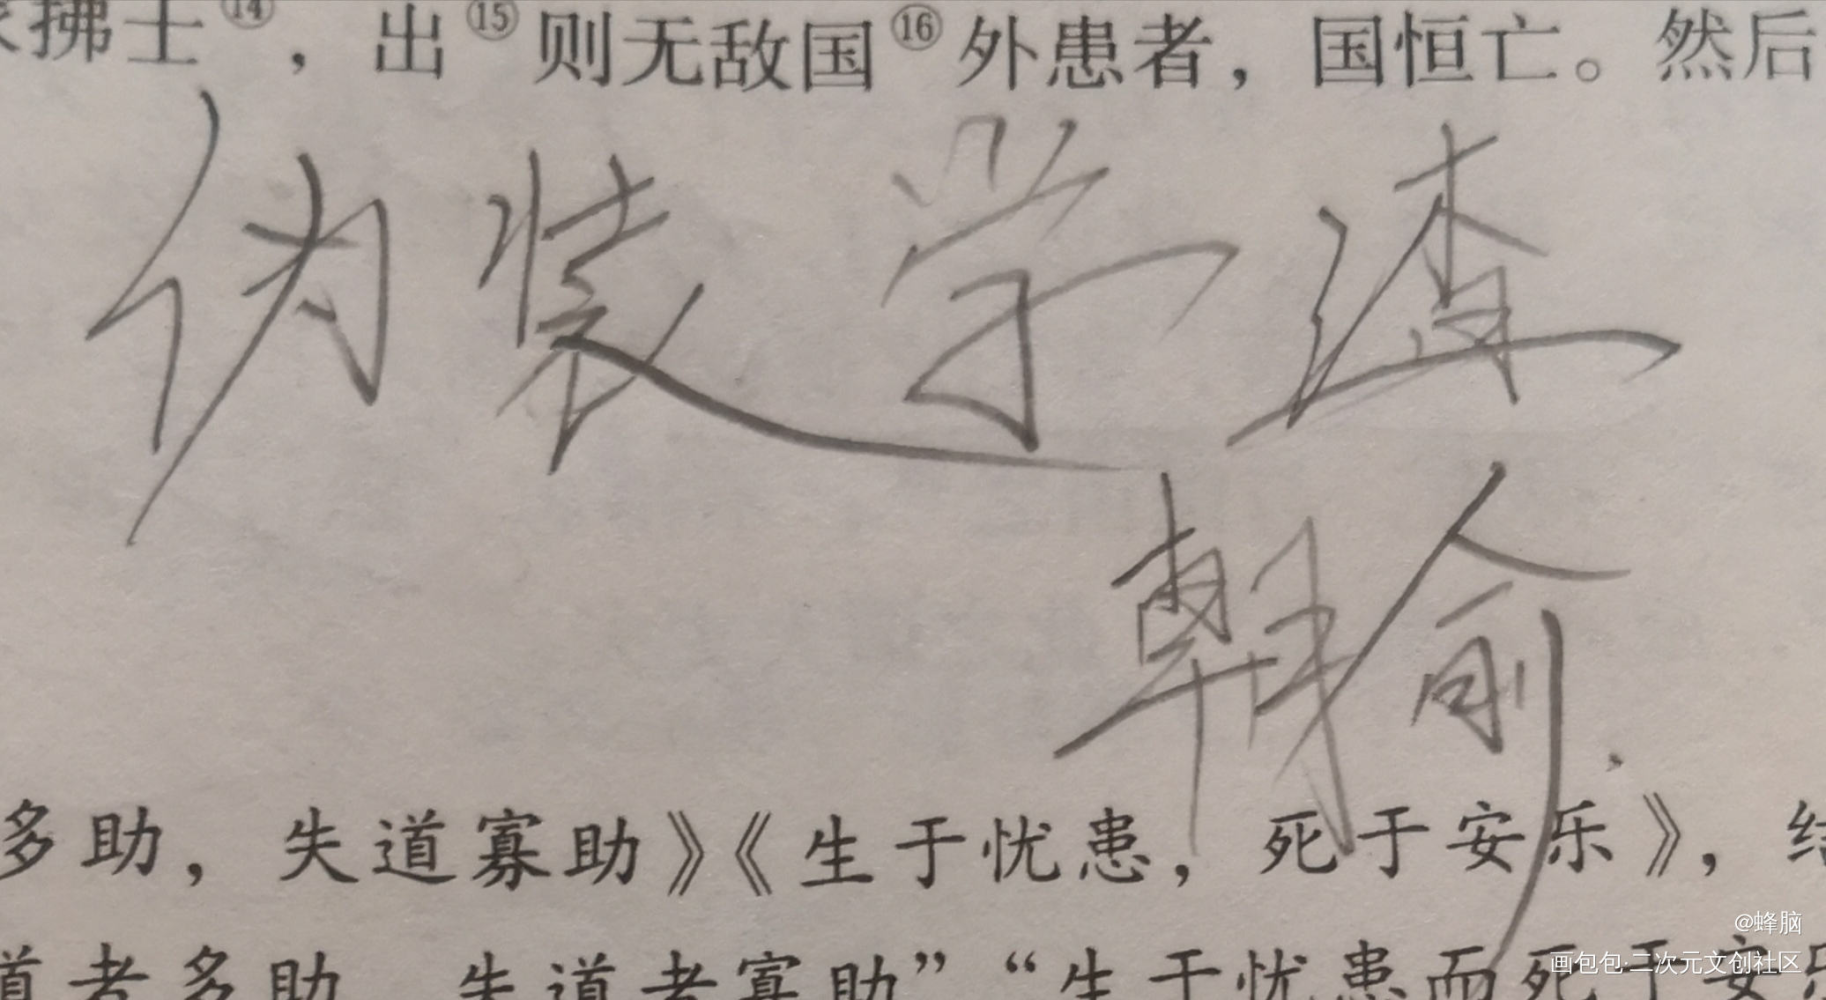 拂士⑭，出⑮则无敌国⑯外患者，国恒亡。然后
伪装学渣
韩俞
多助，失道寡助》《生于忧患，死于安乐》，结
道者多助 失道者寡助”“生于忧患而死于安乐
@蜂脑
画包包·二次元文创社区